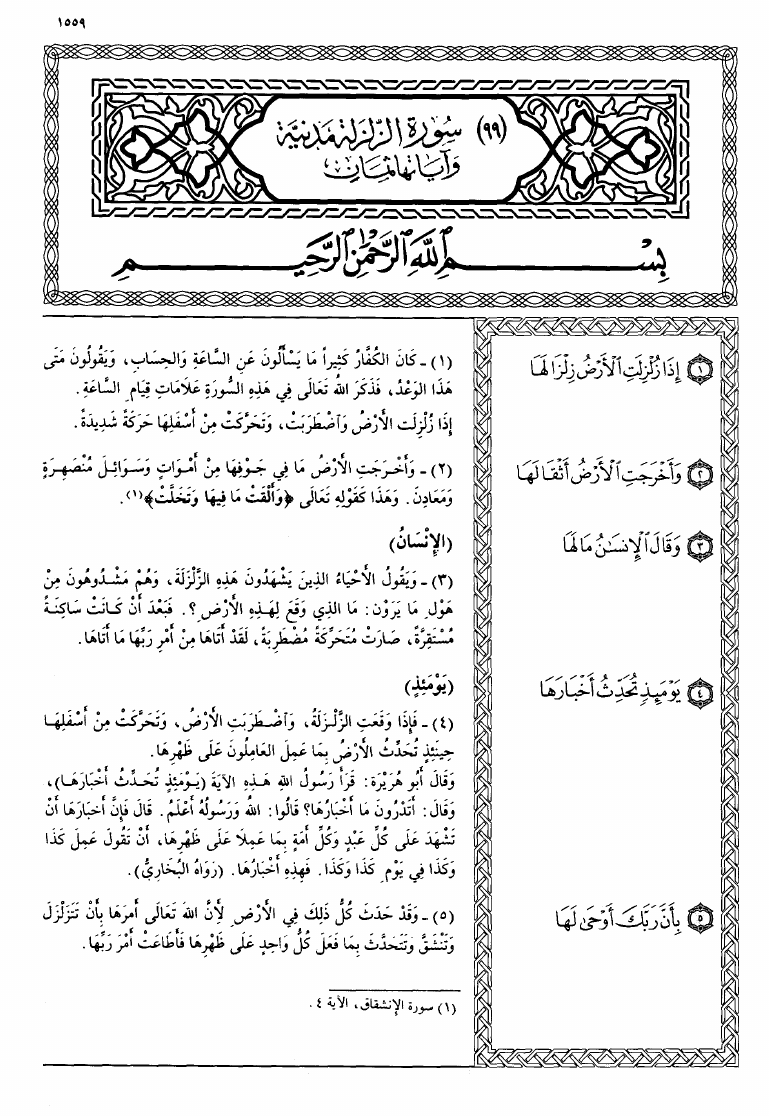 ١٥٥٩
(٩٩) سُورَةُ الزَّلْزَلَةِ مَدَنِيَّةٌ
وَآيَاتُهَا ثَمَانٍ
بِسْمِ ٱللَّهِ ٱلرَّحْمَٰنِ ٱلرَّحِيمِ
١ إِذَا زُلْزِلَتِ ٱلْأَرْضُ زِلْزَالَهَا
٢ وَأَخْرَجَتِ ٱلْأَرْضُ أَثْقَالَهَا
٣ وَقَالَ ٱلْإِنسَٰنُ مَا لَهَا
٤ يَوْمَئِذٍ تُحَدِّثُ أَخْبَارَهَا
٥ بِأَنَّ رَبَّكَ أَوْحَىٰ لَهَا
(١) - كَانَ الكُفَّارُ كَثِيراً مَا يَسْأَلُونَ عَنِ السَّاعَةِ وَالحِسَابِ، وَيَقُولُونَ مَتَى
هَذَا الوَعْدُ، فَذَكَرَ اللهُ تَعَالَى فِي هَذِهِ السُّورَةِ عَلَامَاتِ قِيَامِ السَّاعَةِ.
إِذَا زُلْزِلَتِ الأَرْضُ وَٱضْطَرَبَتْ، وَتَحَرَّكَتْ مِنْ أَسْفَلِهَا حَرَكَةً شَدِيدَةً.
(٢) - وَأَخْرَجَتِ الأَرْضُ مَا فِي جَوْفِهَا مِنْ أَمْوَاتٍ وَسَوَائِلَ مُنْصَهِرَةٍ
وَمَعَادِنَ. وَهَذَا كَقَوْلِهِ تَعَالَى ﴿وَأَلْقَتْ مَا فِيهَا وَتَخَلَّتْ﴾(١).
(الإِنْسَانُ)
(٣) - وَيَقُولُ الأَحْيَاءُ الذِينَ يَشْهَدُونَ هَذِهِ الزَّلْزَلَةَ، وَهُمْ مَشْدُوهُونَ مِنْ
هَوْلِ مَا يَرَوْنَ: مَا الذِي وَقَعَ لِهَذِهِ الأَرْضِ؟. فَبَعْدَ أَنْ كَانَتْ سَاكِنَةً
مُسْتَقِرَّةً، صَارَتْ مُتَحَرِّكَةً مُضْطَرِبَةً، لَقَدْ أَتَاهَا مِنْ أَمْرِ رَبِّهَا مَا أَتَاهَا.
(يَوْمَئِذٍ)
(٤) - فَإِذَا وَقَعَتِ الزَّلْزَلَةُ، وَٱضْطَرَبَتِ الأَرْضُ، وَتَحَرَّكَتْ مِنْ أَسْفَلِهَا
حِينَئِذٍ تُحَدِّثُ الأَرْضُ بِمَا عَمِلَ العَامِلُونَ عَلَى ظَهْرِهَا.
وَقَالَ أَبُو هُرَيْرَةَ: قَرَأَ رَسُولُ اللهِ هَذِهِ الآيَةَ (يَوْمَئِذٍ تُحَدِّثُ أَخْبَارَهَا)،
وَقَالَ: أَتَدْرُونَ مَا أَخْبَارُهَا؟ قَالُوا: اللهُ وَرَسُولُهُ أَعْلَمُ. قَالَ فَإِنَّ أَخْبَارَهَا أَنْ
تَشْهَدَ عَلَى كُلِّ عَبْدٍ وَكُلِّ أَمَةٍ بِمَا عَمِلَا عَلَى ظَهْرِهَا، أَنْ تَقُولَ عَمِلَ كَذَا
وَكَذَا فِي يَوْمِ كَذَا وَكَذَا. فَهِذِهِ أَخْبَارُهَا. (رَوَاهُ البُخَارِيُّ).
(٥) - وَقَدْ حَدَثَ كُلُّ ذَلِكَ فِي الأَرْضِ لِأَنَّ اللهَ تَعَالَى أَمَرَهَا بِأَنْ تَتَزَلْزَلَ
وَتَنْشَقَّ وَتَتَحَدَّثَ بِمَا فَعَلَ كُلُّ وَاحِدٍ عَلَى ظَهْرِهَا فَأَطَاعَتْ أَمْرَ رَبِّهَا.
(١) سورة الإنشقاق، الآية ٤.